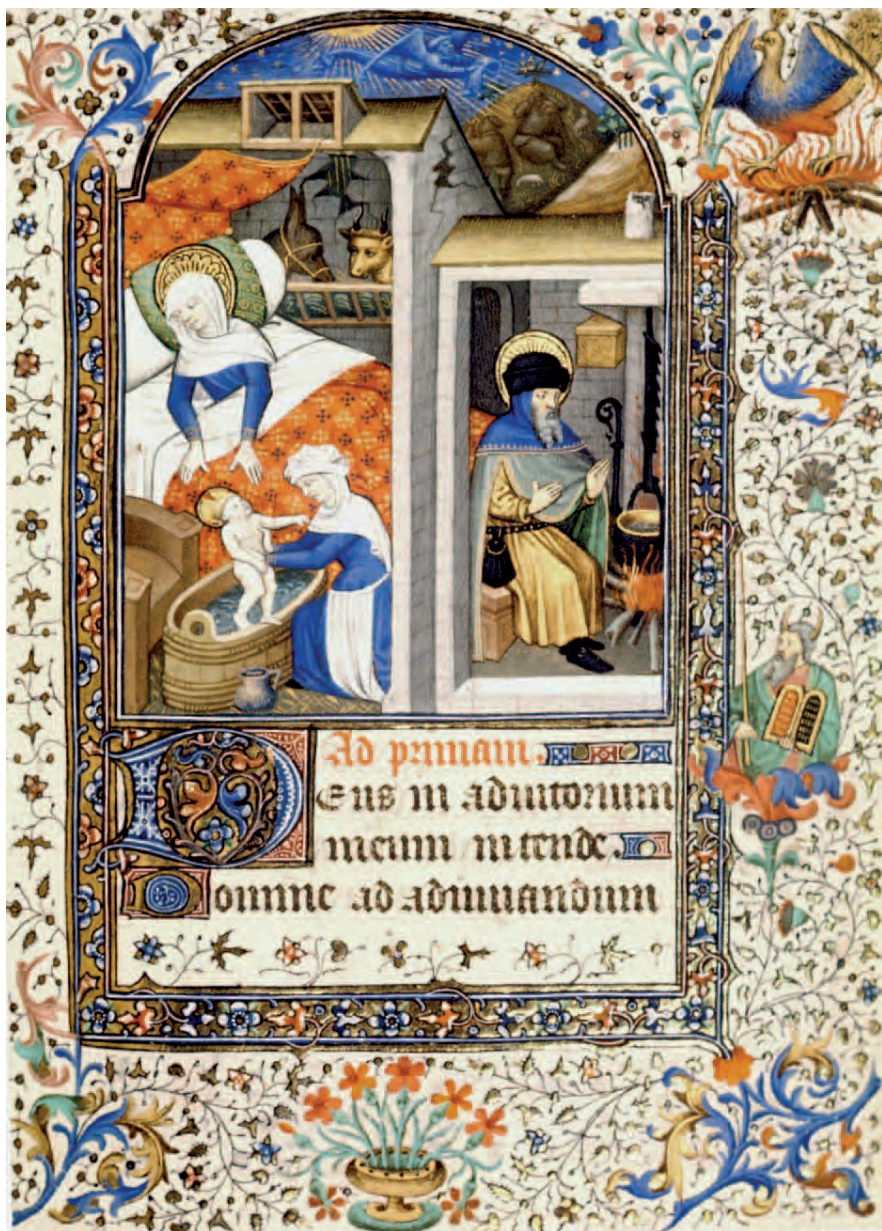 Ad primam.
Deus in adiutorium
meum intende.
Domine ad adiuuandum